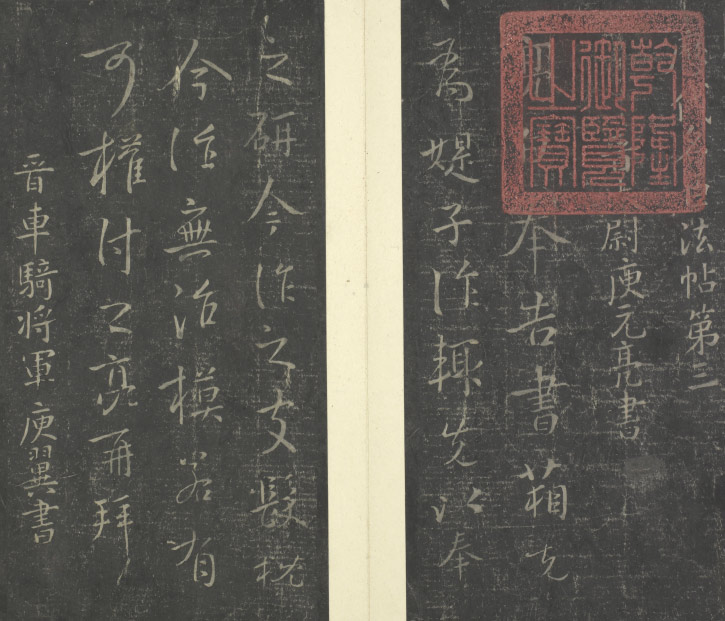 乾隆御覽之寶
法帖第三
尉庾元亮書
奉告書箱先
為媞子作輒先以奉
之研今作之支髮枕
今作無治模若有
可權付之亮再拜
晉車騎將軍庾翼書